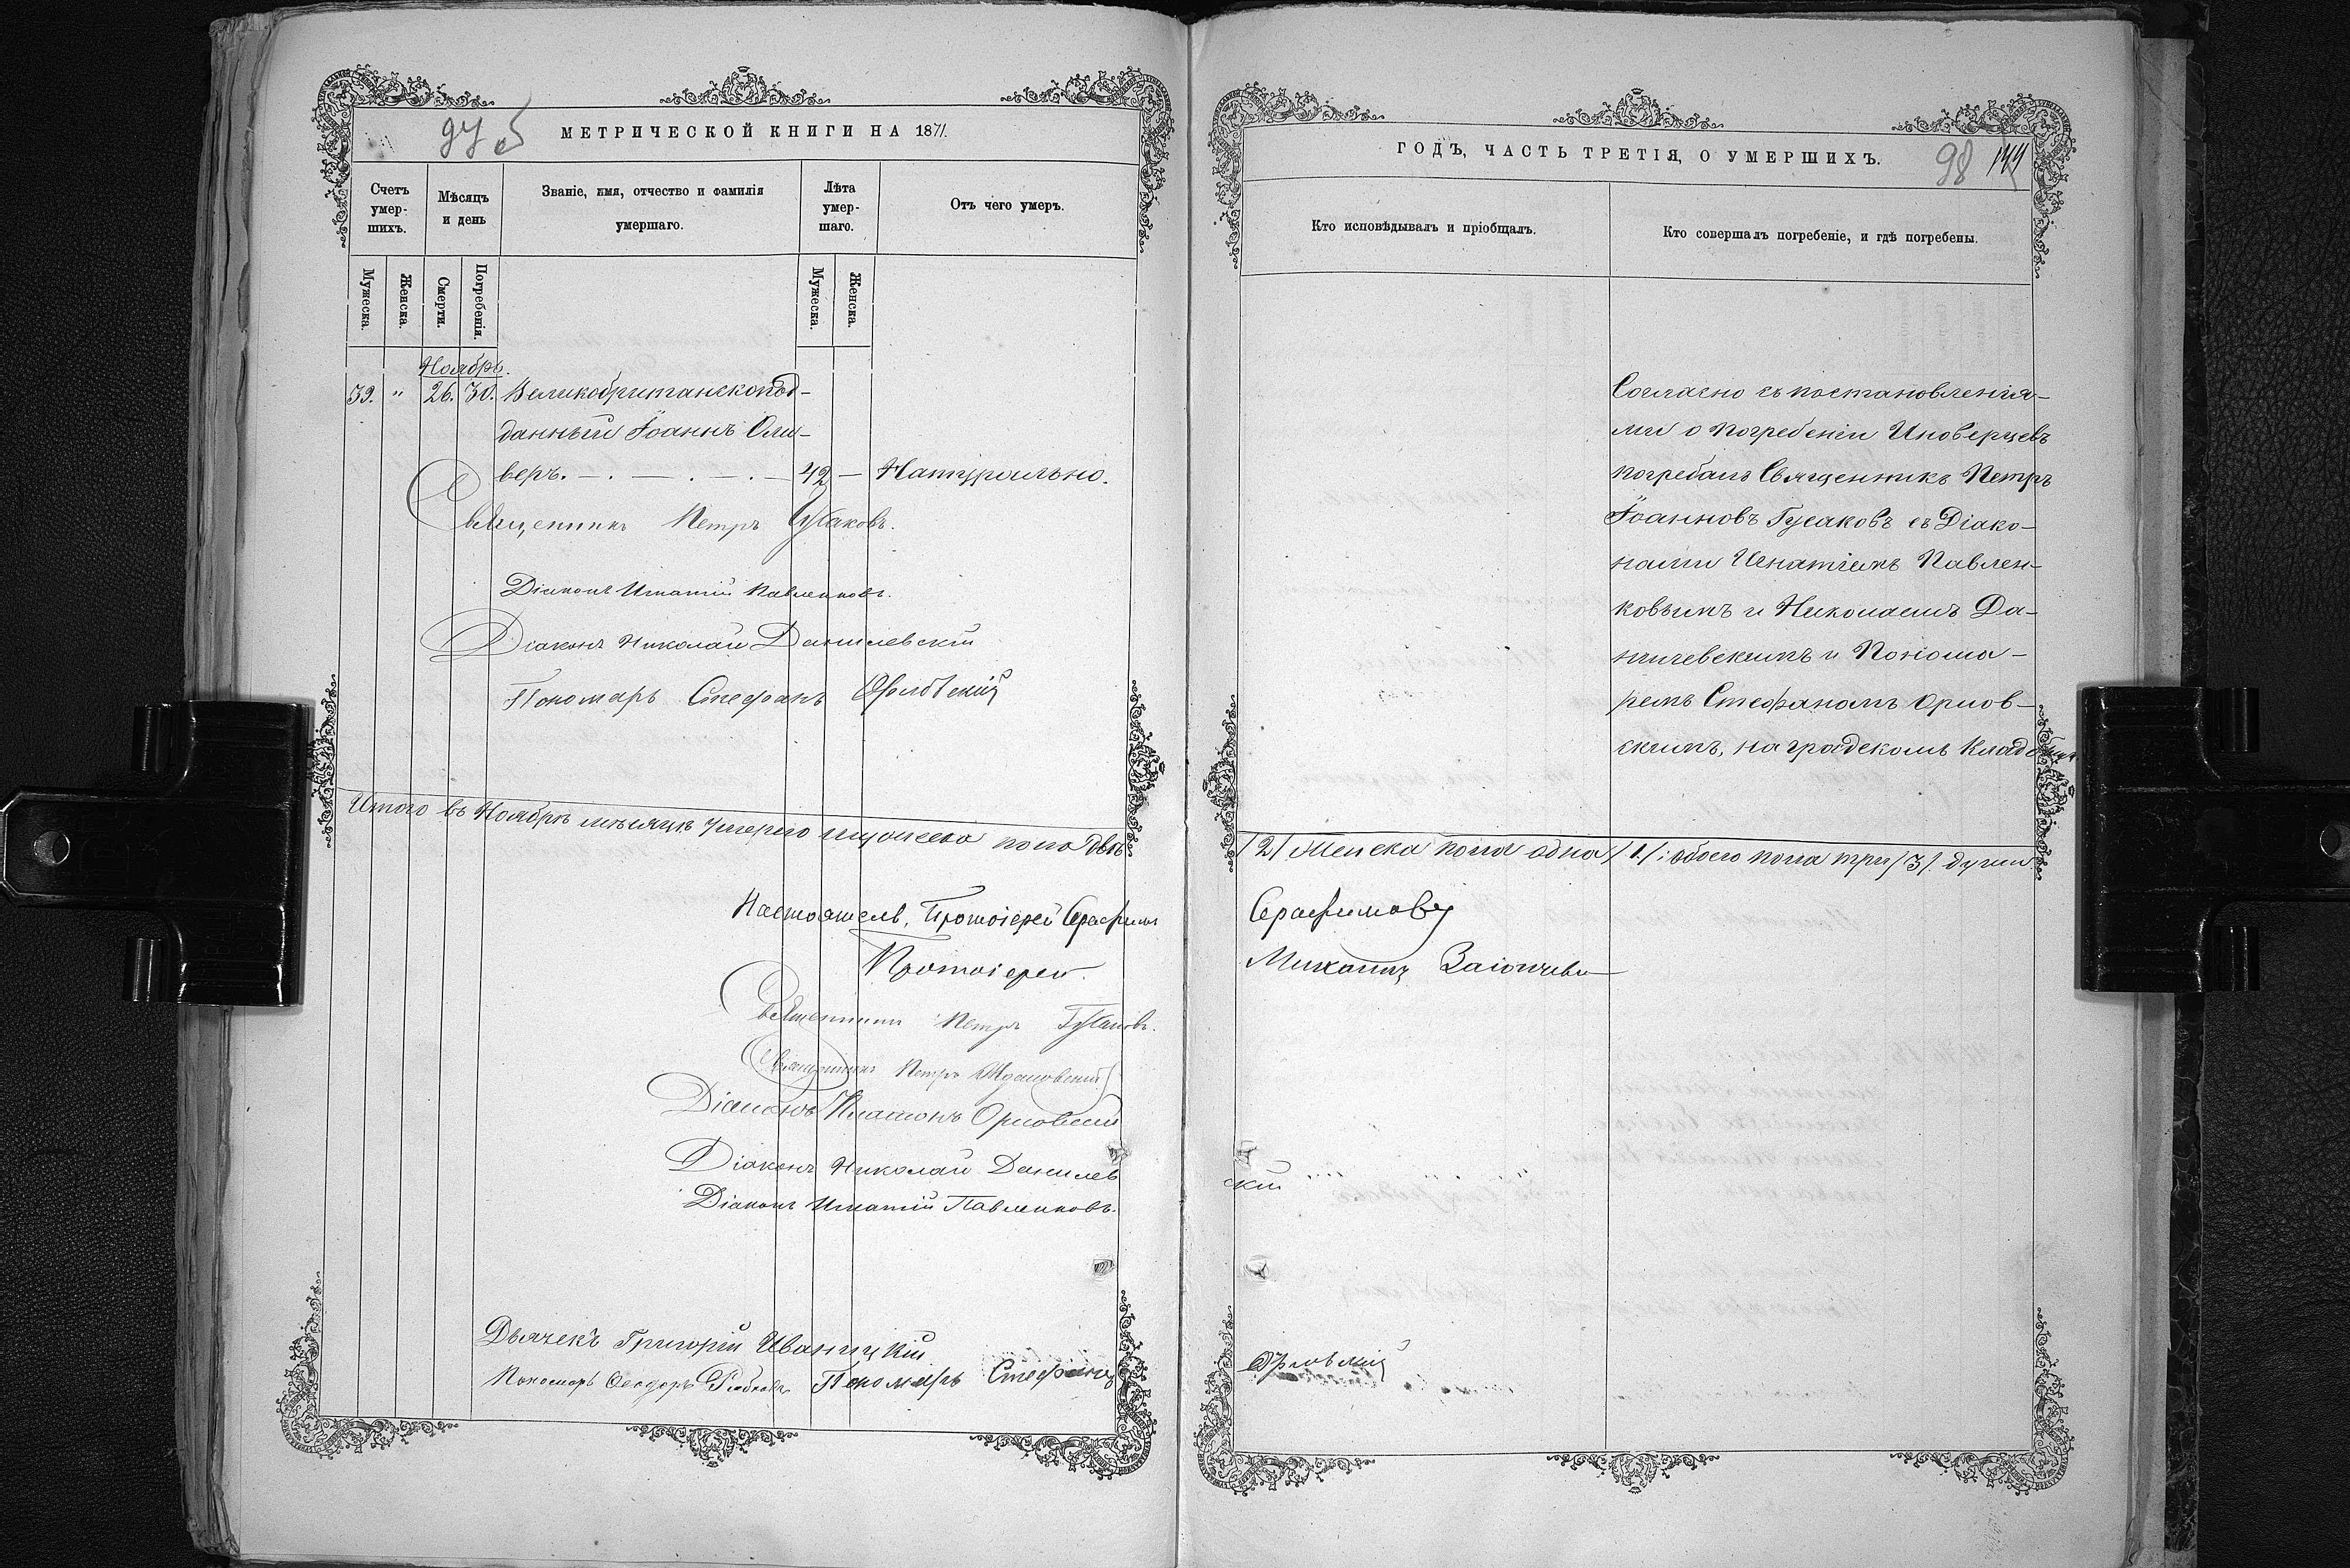 97 об
МЕТРИЧЕСКОЙ КНИГИ НА 1871.
Счетъ умер-шихъ.
Мѣсяцъ и день
Званіе, имя, отчество и фамилія умершаго.
Лѣта умер-шаго.
Отъ чего умеръ.
Мужеска.
Женска.
Смерти.
Погребенія.
Мужеска.
Женска.
Ноябрь.
39. " 26. 30. Великобританскопод-
данный Іоаннъ Оли-
веръ. — . — . — . — 42 — Натурально.
Священникъ Петръ Гусаковъ.
Діаконъ Игнатій Павленковъ.
Діаконъ Николай Данилевскій
Пономарь Стефанъ Орловскій
Итого въ Ноябрѣ мѣсяцѣ умерло мужеска пола двѣ
Настоятель, Протоіерей Серафимъ
Протоіерей
Священникъ Петръ Гусаковъ.
Священникъ Петръ
Діаконъ Платонъ Орловскій
Діаконъ Николай Данилев
Діаконъ Игнатій Павленковъ.
Дьячекъ Григорій Иваницкій
Пономарь Ѳеодоръ Пономарь Стефанъ
ГОДЪ, ЧАСТЬ ТРЕТІЯ, О УМЕРШИХЪ.
98 144
Кто исповѣдывалъ и пріобщалъ.
Кто совершалъ погребеніе, и гдѣ погребены.
Согласно съ постановленія-
ми о погребеніи Иновѣрцевъ
погребалъ Священникъ Петръ
Іоанновъ Гусаковъ съ Діако-
нами Игнатіемъ Павлен-
ковымъ и Николаемъ Да-
нилевскимъ и Понома-
ремъ Стефаномъ Орлов-
скимъ, на градскомъ кладбищѣ.
/2/ Женска пола одна /1/; обоего пола три /3/ души
Серафимовъ
Михаилъ
скій
Орловскій